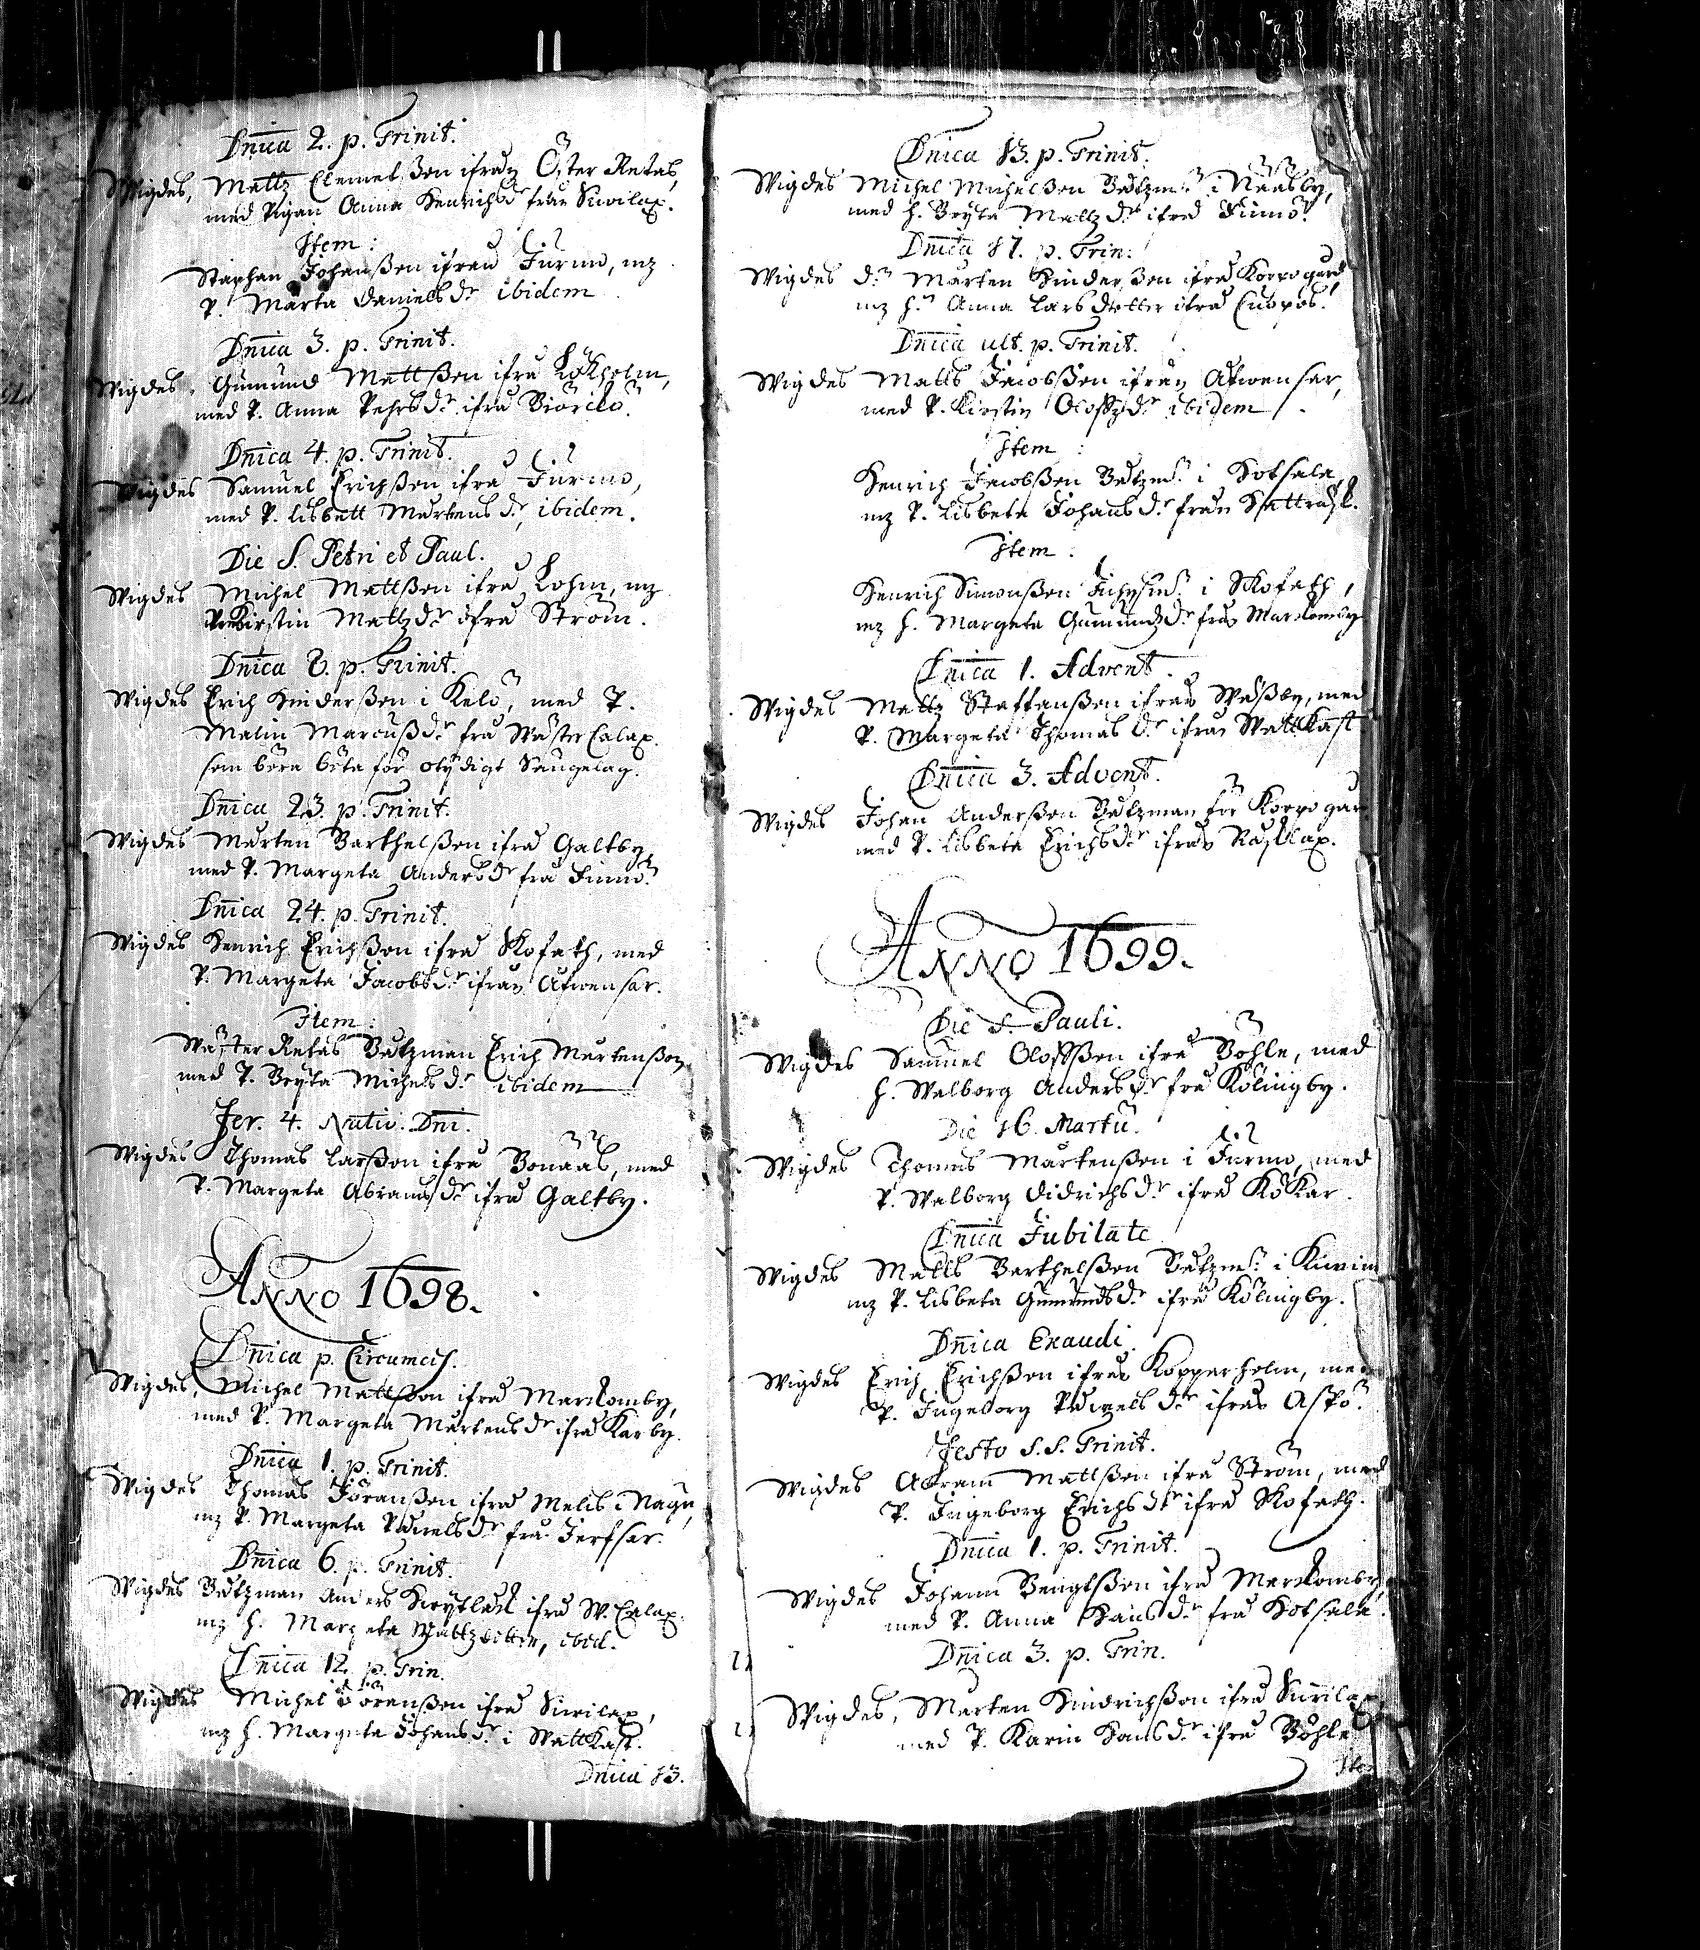 Dnica 2. p. Trinit.
Wigdes, Mattz Clemetßon ifrån Öster Retas,
med Pigan Anna Henrichsdr från Kirvilax.
Item:
Staphan Johanßon ifrån Jurmo, mz
P. Marta Danielsdr ibidem
Dnica 3. p. Trinit.
Wigdes, Gumund Mattßon ifrå Lökholm,
med P. Anna Pehrsdr ifrå Biörkö.
Dnica 4. p. Trinit.
Wigdes Samuel Erichßon ifrå Jurmo,
med P. Lisbett Mårtensdr, ibidem.
Die S. Petri et Paul.
Wigdes Michel Mattßon ifrå Lohm, mz
Kirstin Mattzdr ifrå Ström.
Dnica 8. p. Trinit.
Wigdes Erich Hinderßon i Kelö, med P.
Malin Marcusdr frå Wäster Calax.
som böra böta för otydigt Sängelag.
Dnica 23. p. Trinit.
Wigdes Mårten Barthelßon ifrå Galtby,
med P. Margeta Andersdr frå Finnö.
Dnica 24. p. Trinit.
Wigdes Henrich Erichßon ifrå Kofath, med
P. Margeta Jacobsdr ifrån Afwensar.
Item:
Wäster Retas Båtzman Erich Mårtenßon,
med P. Bryta Michelsdr ibidem
Fer. 4. Nativ. Dni.
Wigdes Thomas Larßon ifrå Bonäås, med
P. Margeta Abramsdr ifrå Galtby.
ANNO 1698.
Dnica p. Circumcis.
Wigdes, Michel Mattßon ifrå Markomby,
med P. Margeta Mårtensdr ifrå Karby.
Dnica 1. p. Trinit.
Wigdes Thomas Jöranßon ifrå Melis i Nagu,
mz P. Margeta Påwelsdr frå Jerfsar.
Dnica 6. p. Trinit.
Wigdes Båtzman Anders ifrå W. Calax.
mz h. Margeta Mattzdotter, ibid.
Dnica 12. p. Trin.
Wigdes Michel Jörenßon ifrå Kirvilax,
mz h. Margeta Johansdr i Wattkast.
Dnica 13.
Dnica 13. p. Trinit.
Wigdes Michel Michelßon Båtzm: i Näåsby,
med h. Bryta Mattzdr ifrå Finnö.
Dnica 17. p. Trin:
Wigdes dr: Mårten Hinderßon ifrå Korpogård
mz h: Anna Larsdotter ifrå
Dnica ult. p. Trinit.
Wigdes Matts Jacobßon ifrån Afwensar,
med P. Kirstin Oloffzdr ibidem.
Item:
Henrich Jacobßon Båtzm: i Kotsala,
mz P. Lisbeta Johansdr från Kattrask.
Item:
Henrich Simonßon i Kofath,
mz h. Margeta Gumundzdr från Markomby
Dnica 1. Advent.
Wigdes Mattz Staffanßon ifrån Wäßby, med
P. Margeta Thomasdr ifrån Wattkast
Dnica 3. Advent.
Wigdes Johan Anderßon Båtzman för Korpo går
med P. Lisbeta Erichsdr ifrån Rusklax.
ANNO 1699.
Die S. Pauli.
Wigdes Samuel Oloffßon ifrå Böhle, med
h. Walborg Andersdr frå Kölingby.
Die 16. Martii.
Wigdes Thomas Mårtenßon i Jurmo, med
P. Walborg Didrichsdr ifrå Kökar.
Dnica Jubilate
Wigdes Matts Barthelßon Båtzm: i Kirvin
mz P. Lisbeta Gumundsdr ifrå Kölingby.
Dnica Exaudi.
Wigdes Erich Erichßon ifrå Kopperholm, me
P. Ingeborg Påwelsdr ifrån Aspö.
Festo S.S. Trinit.
Wigdes Abram Mattßon ifrå Ström, med
P. Ingeborg Erichsdr ifrå Kofath.
Dnica 1. p. Trinit.
Wigdes Johann Bengtßon ifrå Markomby,
med P. Anna Hansdr frå Kotsala.
Dnica 3. p. Trin.
Wigdes, Mårten Hindrichßon ifrå Kirvilax
med P. Karin Hansdr ifrå Böhle
Ite